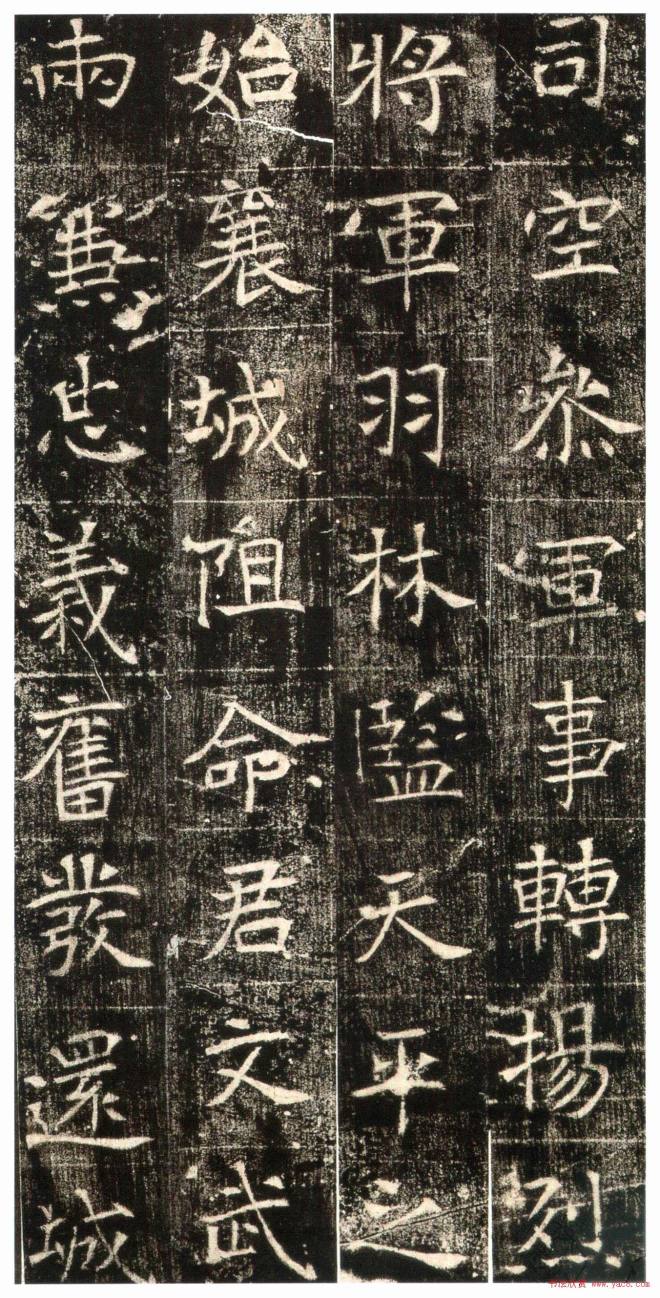 司空叅軍事轉揚烈
將軍羽林監天平之
始襄城阻命君文武
兩兼忠義奮發還城
书法欣赏 www.yac8.com